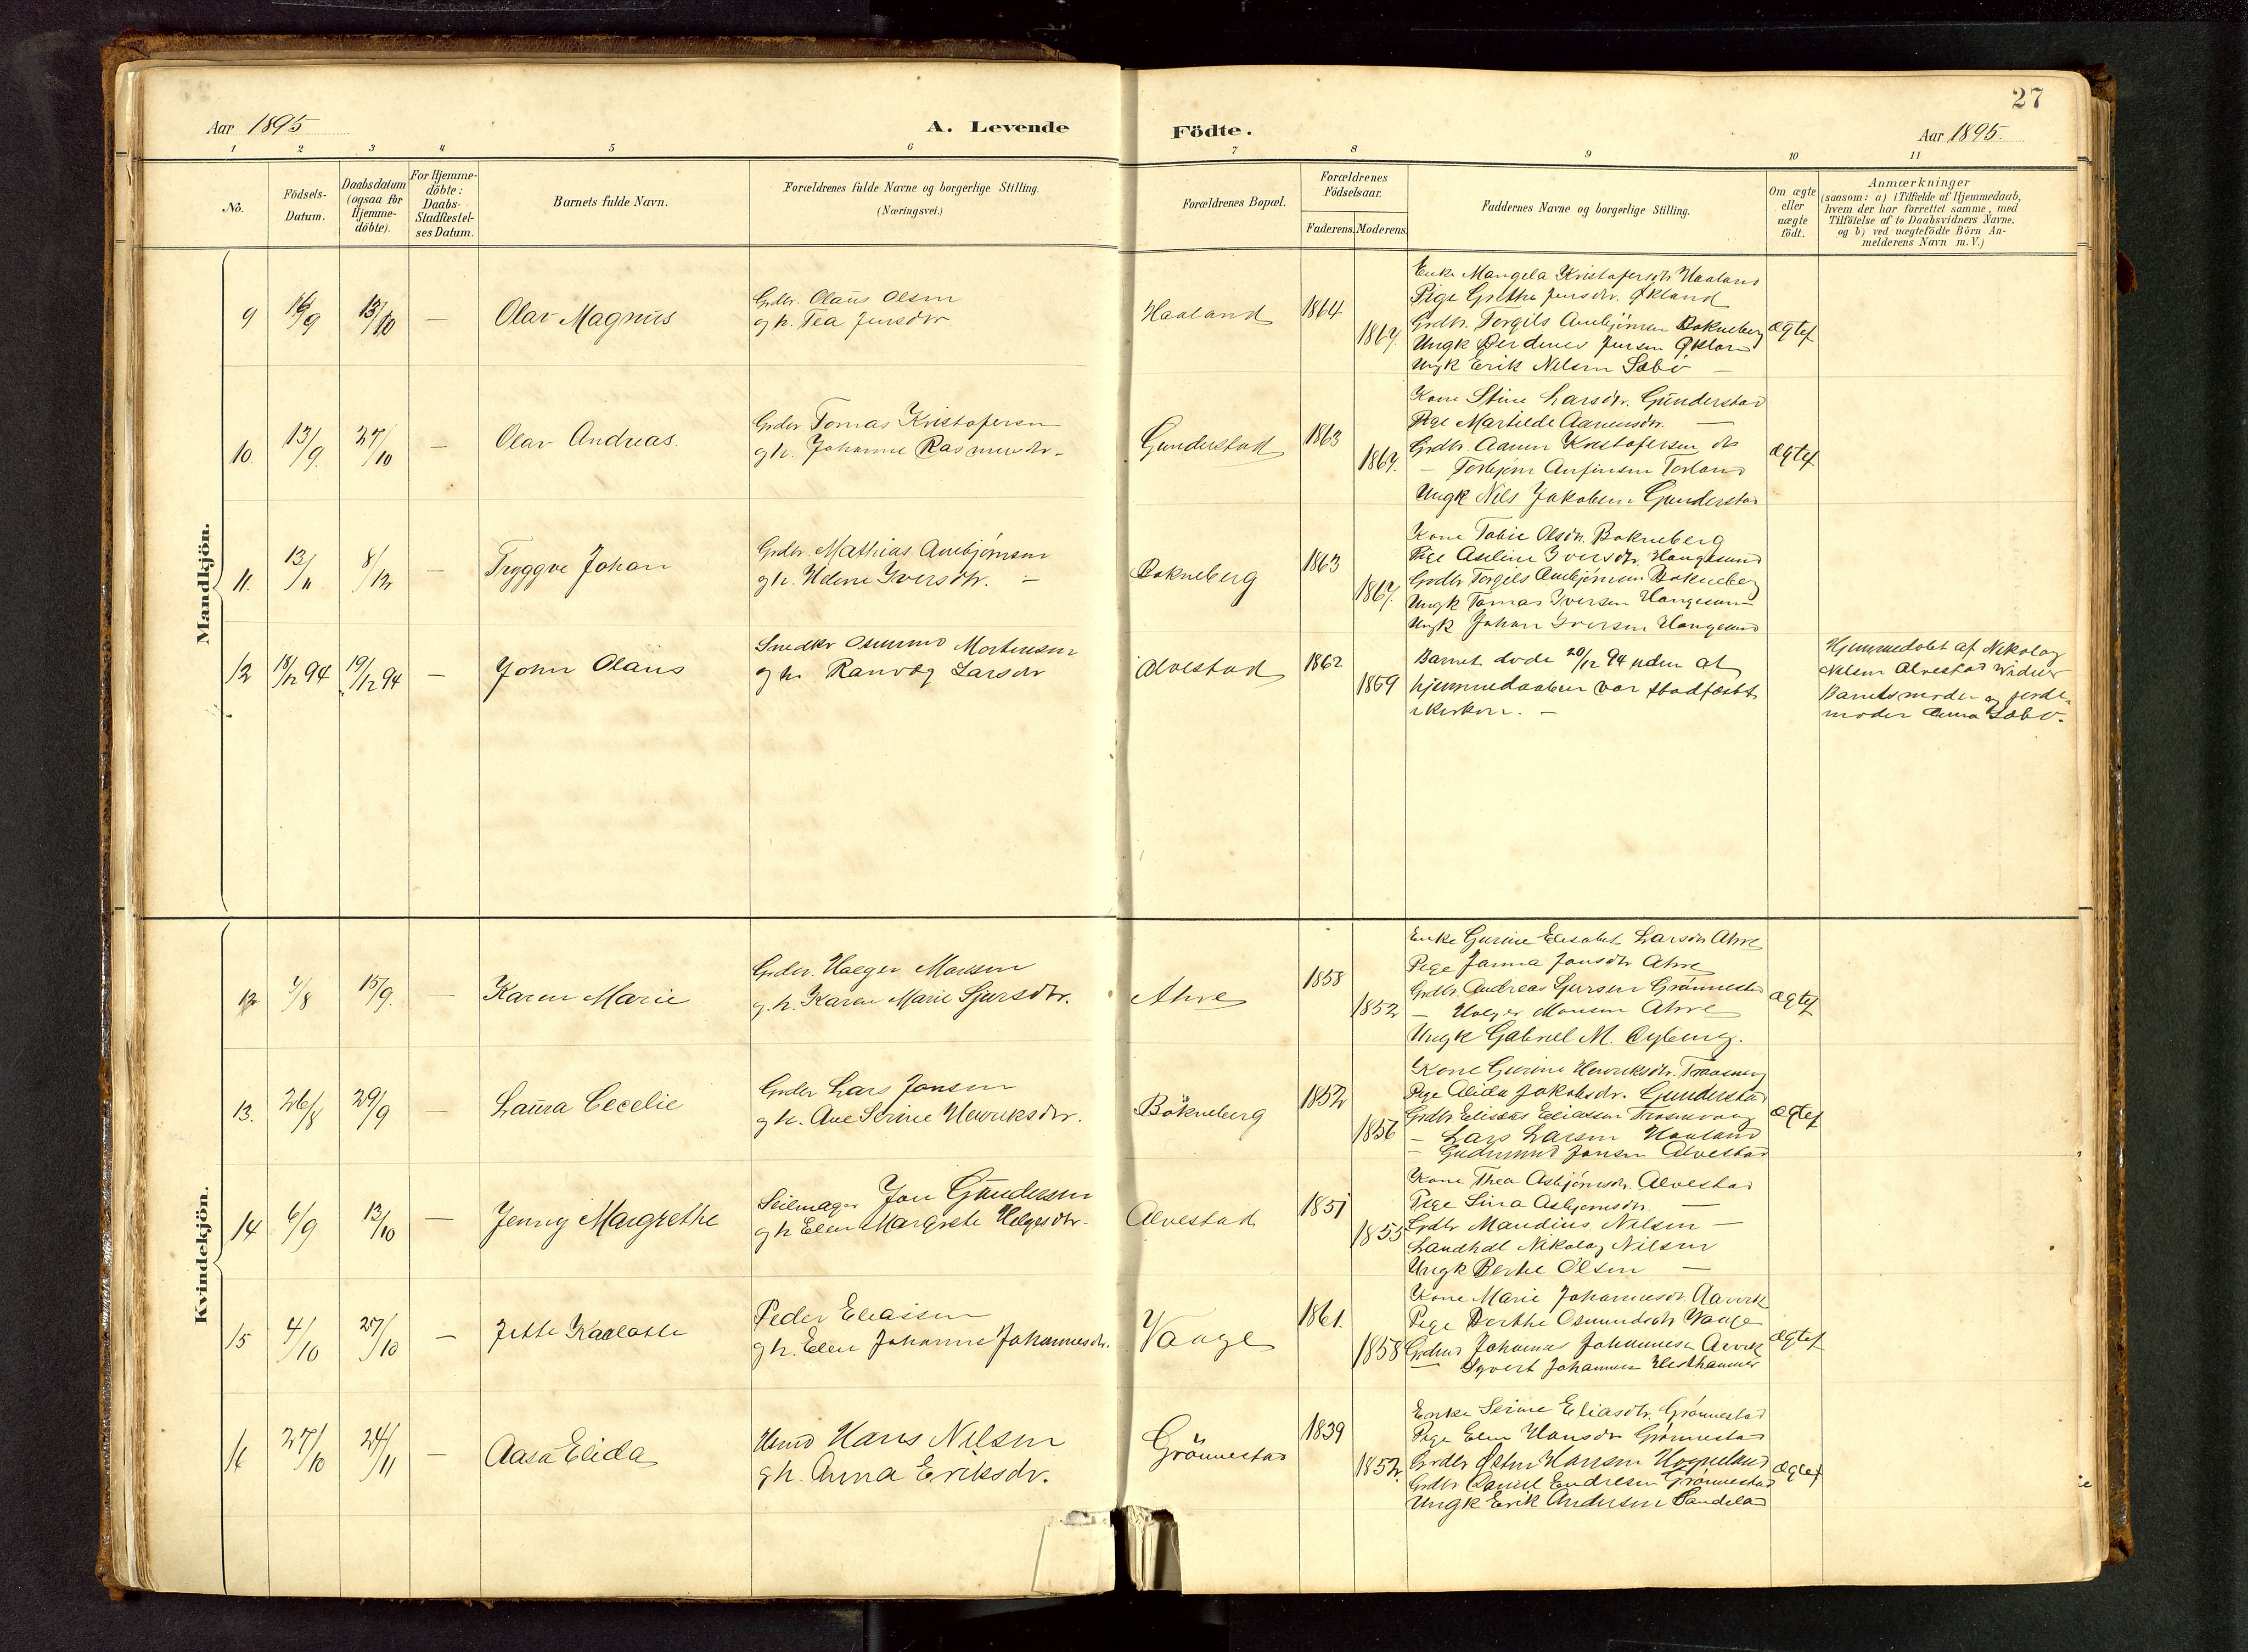 27
Aar 1895
A. Levende
Födte.
Aar 1895.
1 2 3 4 5 6 7 8 9 10 11
No.
Födsels-
Datum.
Daabsdatum
(ogsaa for
Hjemme-
döbte).
For Hjemme-
döbte:
Daabs-
Stadfæstel-
ses Datum.
Barnets fulde Navn.
Forældrenes fulde Navne og borgerlige Stilling.
(Næringsvei.)
Forældrenes Bopæl.
Forældrenes
Födselsaar.
Faderens. Moderens.
Faddernes Navne og borgerlige Stilling.
Om ægte
eller
uægte
födt.
Anmærkninger
(saasom: a) i Tilfælde af Hjemmedaab,
hvem der har forrettet samme, med
Tilföielse af to Daabsvidners Navne.
og b) ved uægtefödte Börn An-
melderens Navn m. V.)
Mandkjön.
9 16/9 13/10 — Olav Magnus
Grdbr. Olaus Olsen
g. h. Tea Jensdtr.
Haaland
1864
1867
Enke Mangela Kristofersdtr Haaland
Pige Grethe Jensdtr. Økland
Grdbr. Torgils Ambjörnsen Bokneberg
Ungk Jensen Økland
Ungk Erik Nilsen Sæbö
ægtef
10. 13/9. 27/10 — Olav Andreas.
Grdbr Tomas Kristofersen
g. h. Johanne Rasmusdtr.
Gunderstad
1863
1867.
Kone Stine Larsdtr. Gunderstad
Pige Martilde Aamundsdtr. —
Grdbr. Kristofersen do
— Torbjörn Anfinsen Torland
Ungk Nils Jakobsen Gunderstad
ægtef
11. 13/11 8/12 — Tryggve Johan
Grdbr. Mathias Ambjörnsen
g. h. Helene Iversdtr. —
Bokneberg
1863
1867.
Kone Tobie Olsdtr. Bokneberg
Pige Aseline Iversdtr. Haugesund
Grdbr Torgils Ambjörnsen Bokneberg
Ungk Tomas Iversen Haugesund
Ungk Johan Iversen Haugesund
12 18/12 94 19/12 94 — John Olaus
Snedker Osmund Mortensen
g. h. Ranvæg Larsdtr
Alvestad
1862
1859
Barnet döde 20/12 94 uden at
hjemmedaaben var stadfæstet
i kirken. —
Hjemmedöbt af Nikolay
Nilsen Alvestad Vidner
Barnets moder og jorde-
moder Anna Sæbö.
Kvindekjön.
12 15/9. — Karen Marie
Grdbr. Holger Monsen
g. h. Karen Marie Sjursdtr.
Ahre
1858
1852
Enke Gurine Elisabet Larsdtr Ahre
Pige Janna Jansdtr Ahre
Grdbr. Andreas Sjursen Grönnestad
— Holger Monsen Ahre
Ungk Gabriel M.
ægtef
13. 26/8 29/9 — Laura Cecelie
Grdbr Lars Jansen
g. h. Ane Serine Henriksdtr.
Bokneberg
1852
1856
Kone Gurine Henriksdtr.
Pige Alida Jakobsdtr. Gunderstad
Grdbr. Elisæus Eliassen
— Lars Larsen Haaland
— Gudmund Jansen Alvestad
ægtef
14 6/9 13/10 — Jenny Margrethe
Seilmager Jon Gundersen
g. h Elen Margrete Helgesdtr.
Alvestad
1851
1855
Kone Thea Asbjörnsdtr. Alvestad
Pige Sina Asbjörnsdtr —
Grdbr Maudius Nilsen —
Landhdl Nikolay Nilsen
Ungk Bertel Olsen —
15 4/10 27/10 — Jette Kaalotte
Peder Eliassen
g. h. Elen Johanne Johannesdtr.
Vaage
1861.
1858
Kone Marie Johannesdtr Aarvik
Pige Berthe Osmundsdtr Vaage
Johannes Johannessen Arvik
— Syvert Johannesen Vesthammer
ægtef
16 27/10 24/11 — Aasa Elida
Husmd Hans Nilsen
g. h. Anna Eriksdtr.
Grönnestad
1839
1852.
Enke Serine Eliasdtr. Grönnestad
Pige Elen Hansdtr Grönnestad
Grdbr Hansen Hognaland
Grdbr Daniel Endresen Grönnestad
Ungk Erik Andersen
ægtef